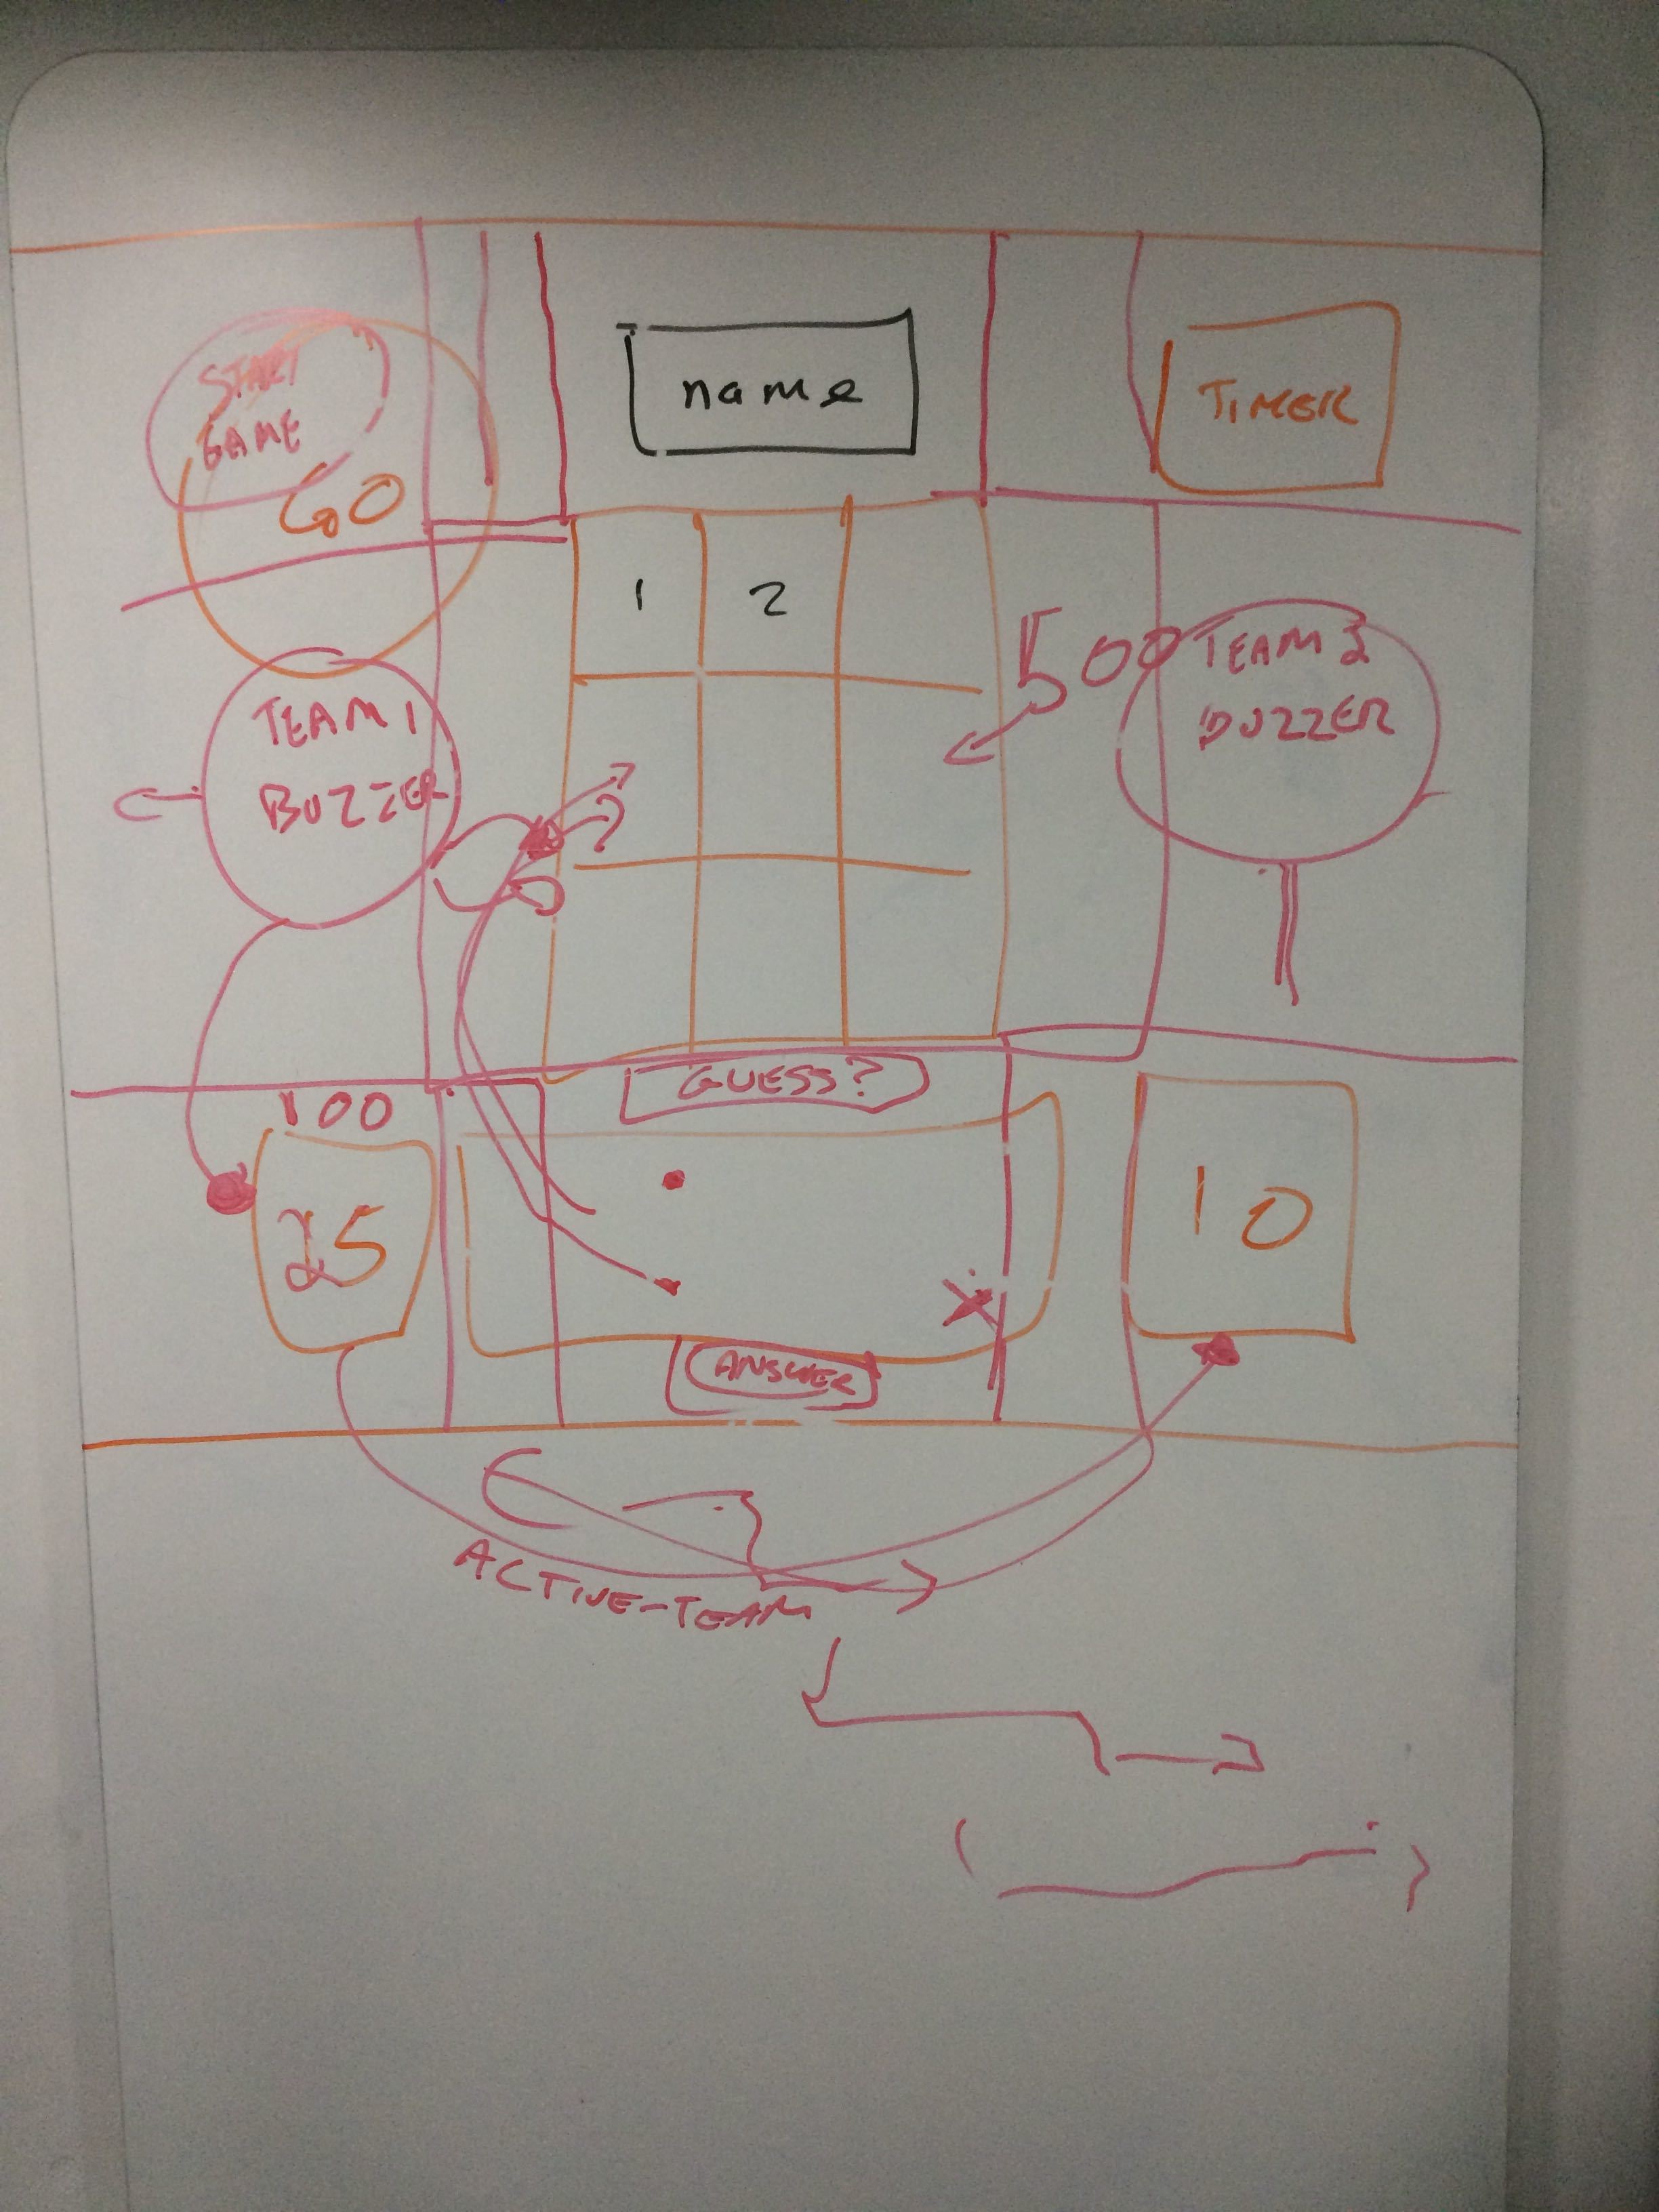 START
GAME
GO
name
TIMER
1
2
500
TEAM 1
BUZZER
TEAM 2
BUZZER
GUESS?
100
25
10
ANSWER
ACTIVE-TEAM